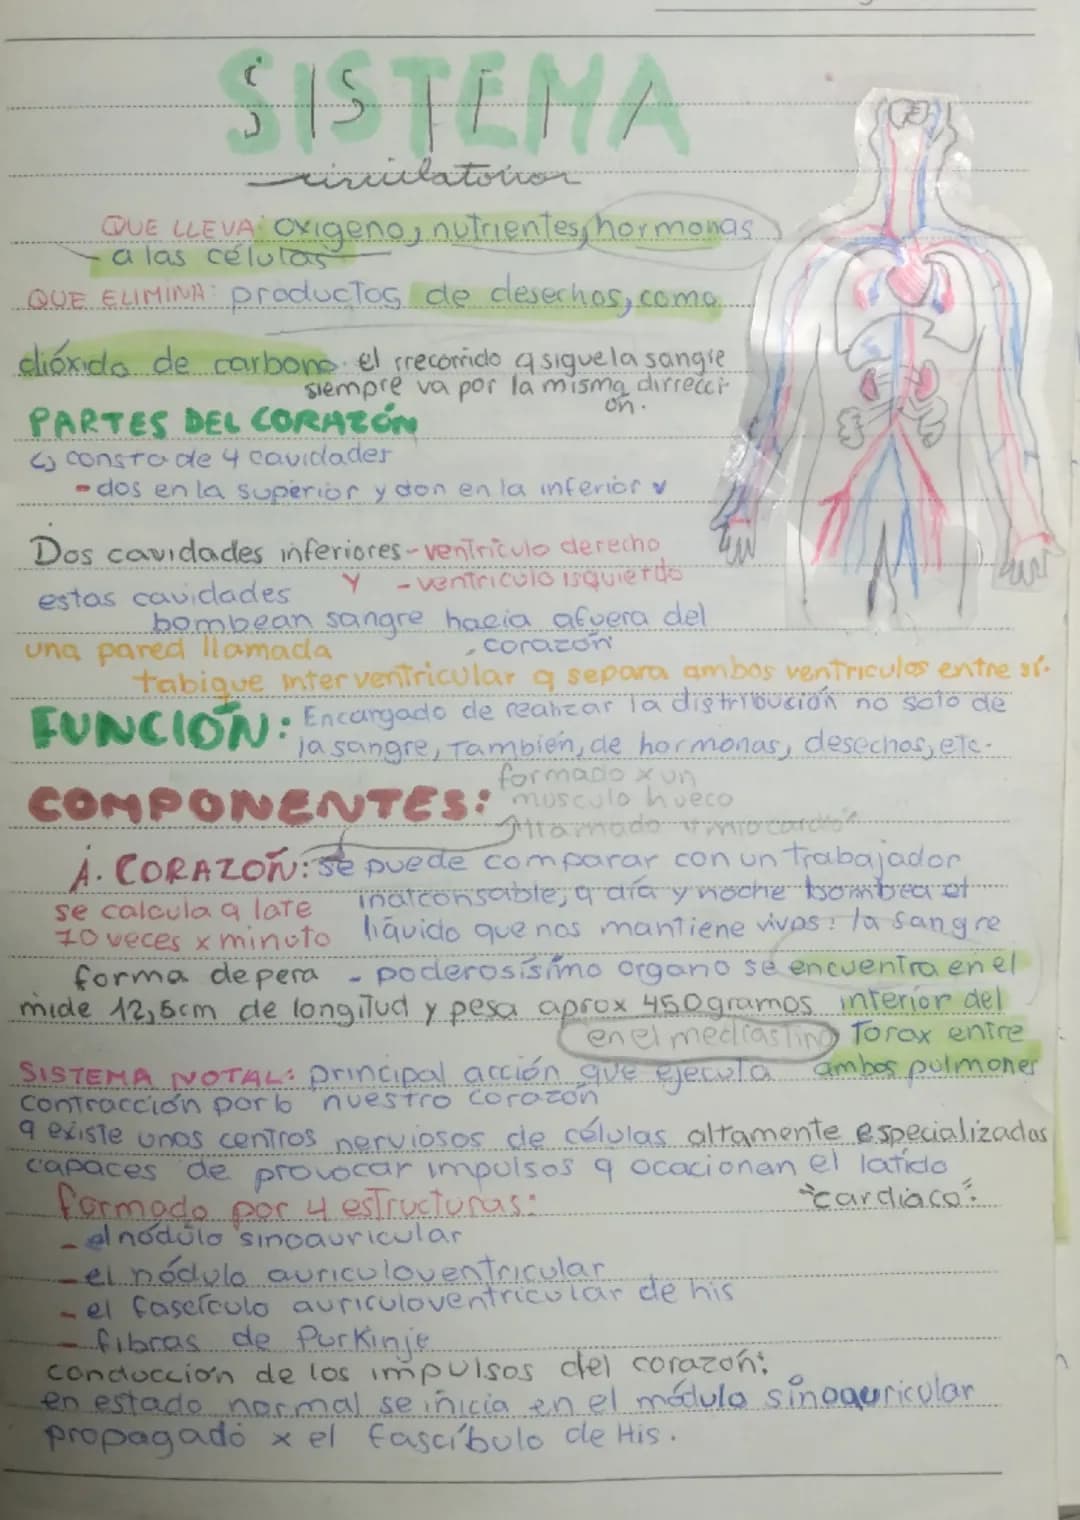 SISTEMA
circulatorior
QUE LLEVA: oxigeno, nutrientes, hormonas
a las células
QUE ELIMINA: productos de desechos, como
dióxido de carbono. el rrecorrido q sigue la sangre
siempre va por la misma dirrecci-
ón.
PARTES DEL CORAZÓN
consta de 4 cavidades
- dos en la superior y don en la inferior
Dos cavidades inferiores - ventriculo derecho
Y - ventriculo isquierdo
estas cavidades
bombean sangre hacia afuera del
corazón
una pared llamada
tabique interventricular q separa ambos ventriculos entre sí.
FUNCIÓN: Encargado de realizar la distribución no solo de
la sangre, También, de hormonas, desechos, etc.
formado x un
COMPONENTES: musculo hueco
llamado "miocardio"
A. CORAZOÑ: se puede comparar con un trabajador
inalconsable, q día y noche bombea el
se calcula q late
líquido que nos mantiene vivos: la sangre
70 veces x minuto
forma de pera - poderosísimo organo se encuentra en el
mide 12,5cm de longitud y pesa aprox 450gramos interior del
en el mediastino Torax entre
SISTEMA NOTAL: principal acción que ejecuta ambos pulmoner
contracción por lo nuestro corazón
q existe unos centros nerviosos de células altamente especializadas
capaces de provocar impulsos q ocacionan el latido
"cardiaco".
formado por 4 estructuras:
- el nódulo sinoauricular
- el nódulo auriculoventricular
- el fascículo auriculoventricular de his
- fibras de Purkinje
conducción de los impulsos del corazón:
en estado normal se inicia en el módulo sinoauricular
propagado x el fascíbulo de His.